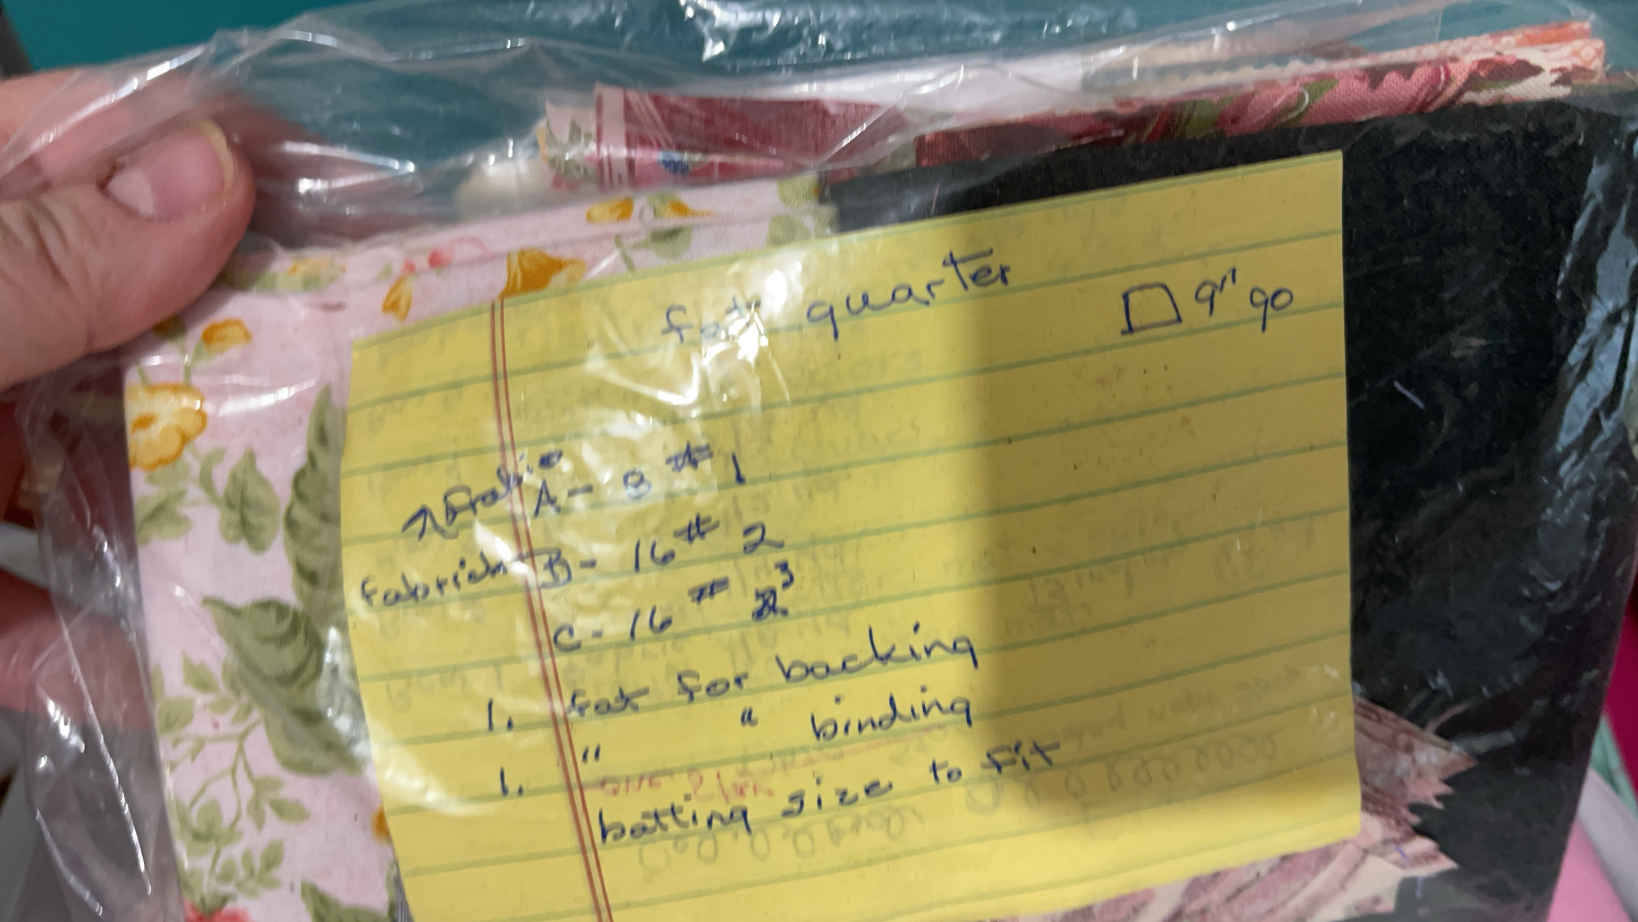 fat quarter
9" 90
Fabric
A - 8 # 1
Fabrich B - 16 # 2
C - 16 # 3
1. fat for backing
1. " " binding
batting size to fit